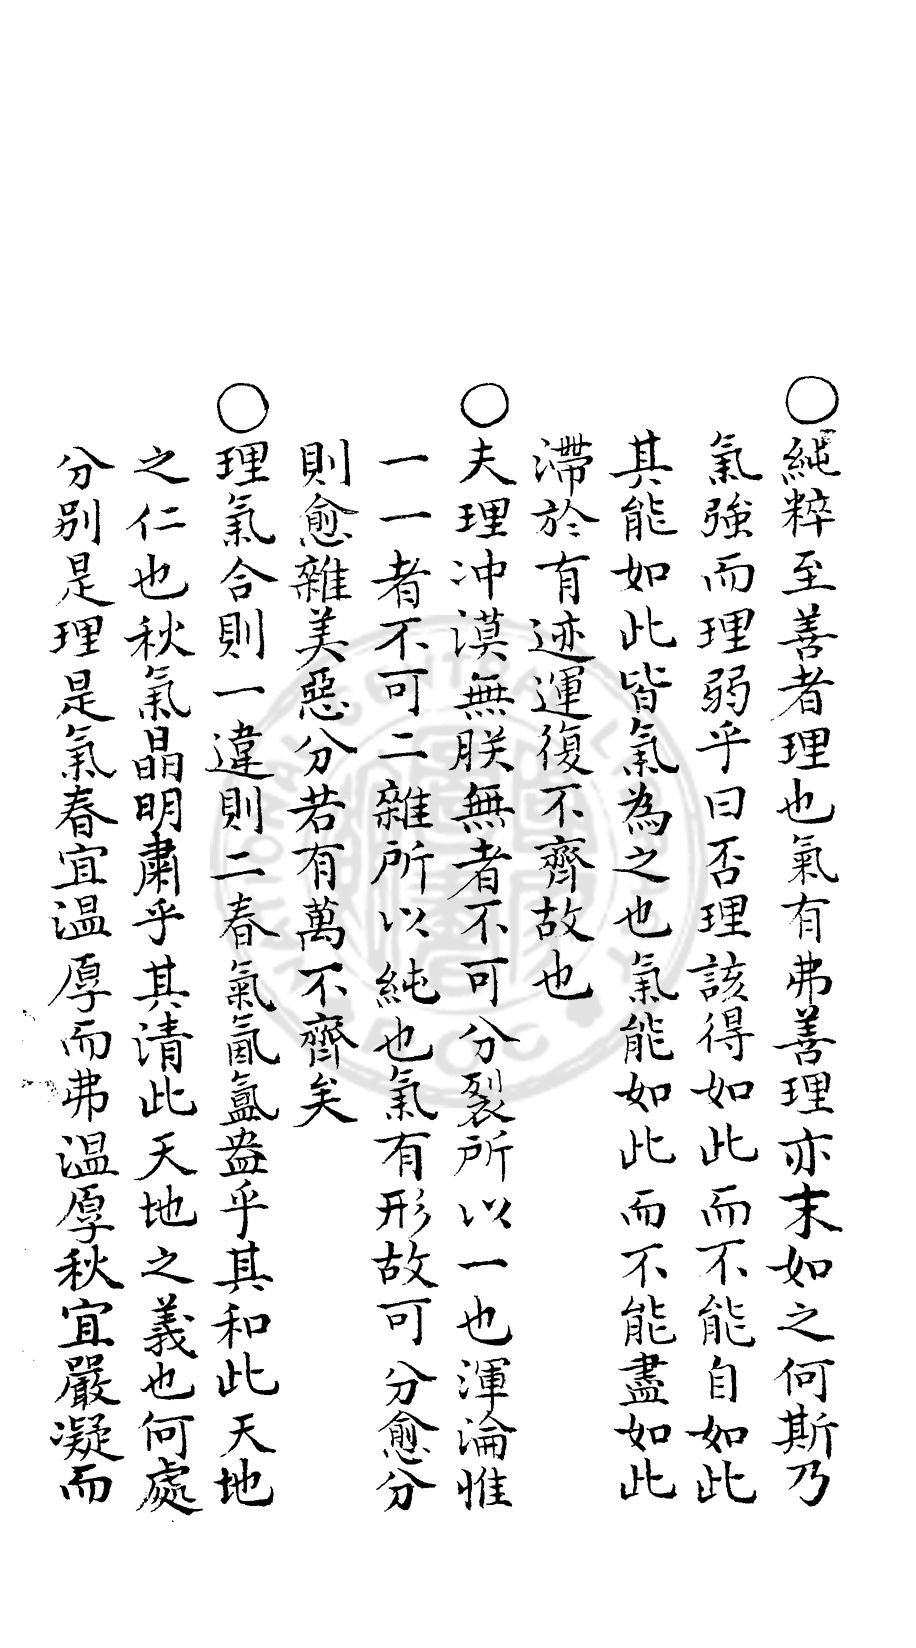 ○純粹至善者理也氣有弗善理亦末如之何斯乃
氣強而理弱乎曰否理該得如此而不能自如此
其能如此皆氣為之也氣能如此而不能盡如此
滯於有迹運復不齊故也
○夫理冲漠無朕無者不可分裂所以一也渾淪惟
一一者不可二雜所以純也氣有形故可分愈分
則愈雜美惡分若有萬不齊矣
○理氣合則一違則二春氣氤氳盎乎其和此天地
之仁也秋氣晶明肅乎其清此天地之義也何處
分別是理是氣春宜温厚而弗温厚秋宜嚴凝而